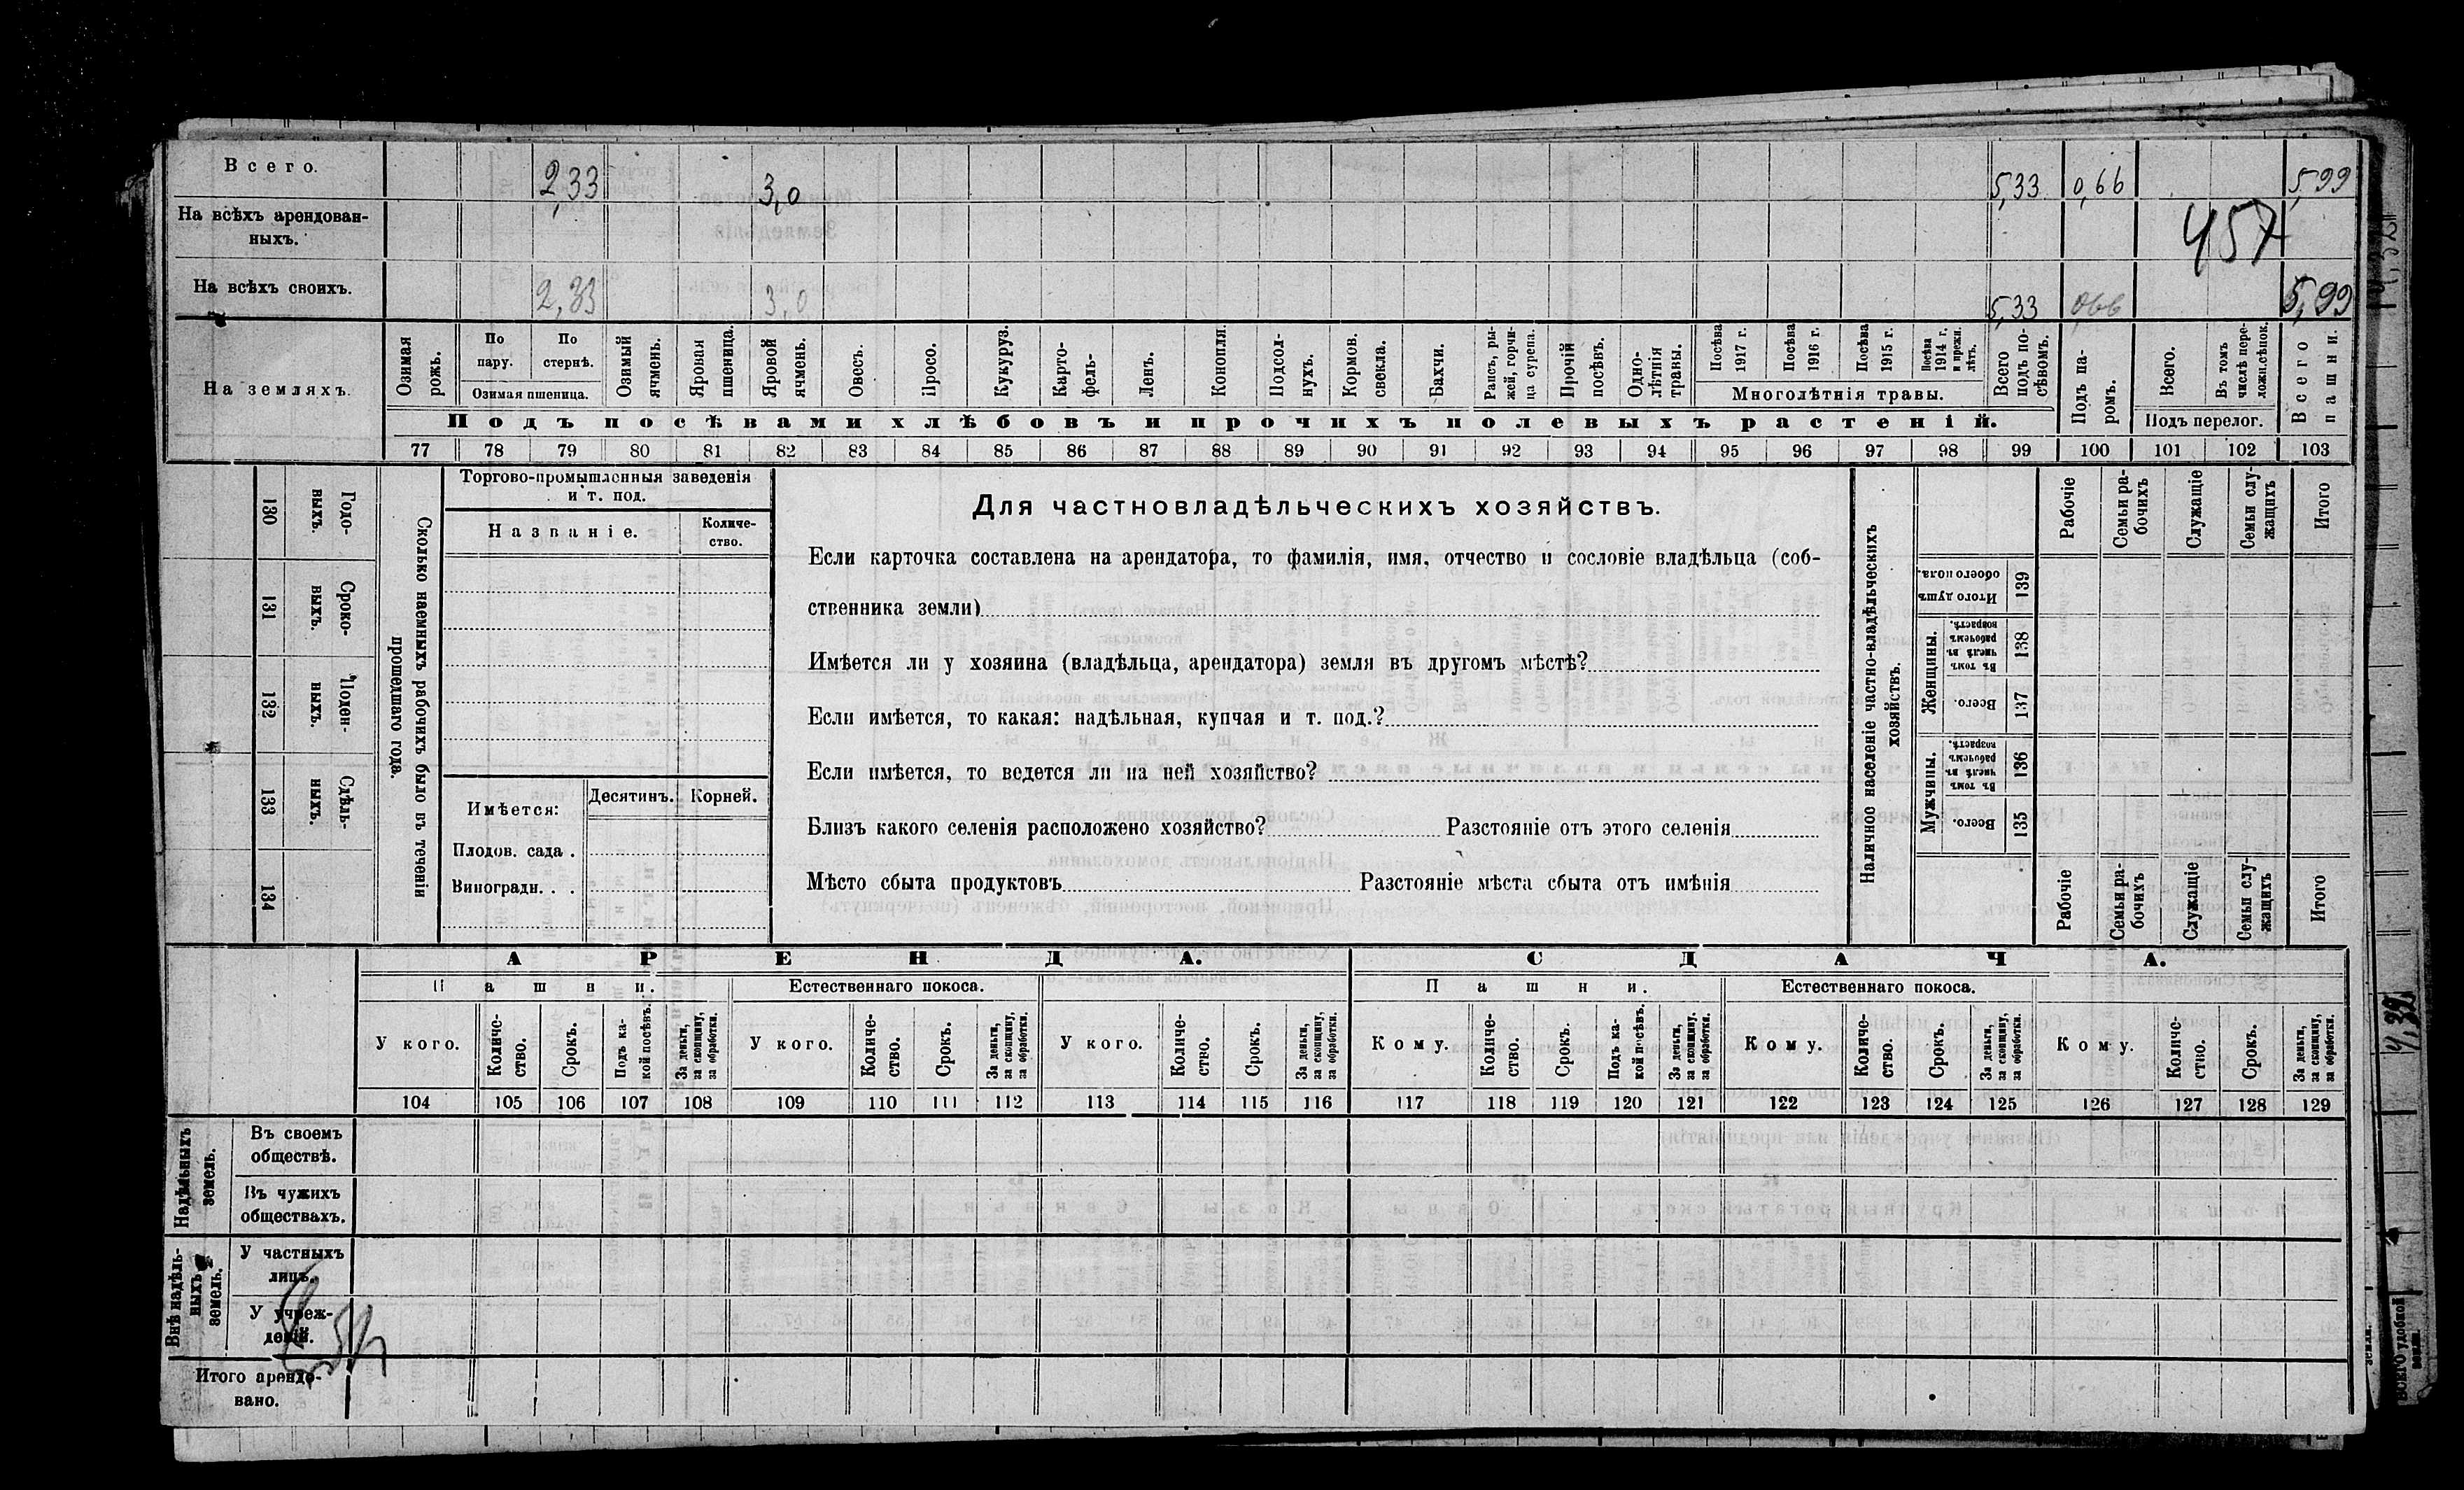 Всего. 2,33 3,0 5,33 0,66 5,99
На всѣхъ арендован-
ныхъ. 457
На всѣхъ своихъ. 2,33 3,0 5,33 0,66 5,99
На земляхъ.
Озимая рожь.
По пару.
По стернѣ.
Озимая пшеница.
Озимый ячмень.
Яровая пшеница.
Яровой ячмень.
Овесъ.
Просо.
Кукуруз.
Карто-фель-
Ленъ.
Конопля.
Подсол-нухъ.
Кормов. свекла.
Бахчи.
Рапсъ, ры-жей, горчи-ца сурепа.
Прочій посѣвъ.
Одно-лѣтнія травы.
Посѣва 1917 г.
Посѣва 1916 г.
Посѣва 1915 г.
Посѣва 1914 г. и прежн. лѣтъ.
Многолѣтнія травы.
Всего подъ по-сѣвомъ.
Подъ па-ромъ.
Всего.
Въ томъ числѣ пере-ложн.сѣнок.
Подъ перелог.
Всего пашни.
Подъ посѣвами хлѣбовъ и прочихъ полевыхъ растеній.
77 78 79 80 81 82 83 84 85 86 87 88 89 90 91 92 93 94 95 96 97 98 99 100 101 102 103
130 Годо-выхъ.
131 Сроко-выхъ.
132 Поден-ныхъ.
133 Сдѣль-ныхъ.
134
Сколько наемныхъ рабочихъ было въ теченіи
прошедшаго года.
Торгово-промышленныя заведенія
и т. под.
Названіе. Количе-ство.
Имѣется: Десятинъ. Корней.
Плодов. сада .
Виноградн. . .
Для частновладѣльческихъ хозяйствъ.
Если карточка составлена на арендатора, то фамилія, имя, отчество и сословіе владѣльца (соб-
ственника земли)
Имѣется ли у хозяина (владѣльца, арендатора) земля въ другомъ мѣстѣ?
Если имѣется, то какая: надѣльная, купчая и т. под.?
Если имѣется, то ведется ли на ней хозяйство?
Близъ какого селенія расположено хозяйство? Разстояніе отъ этого селенія
Мѣсто сбыта продуктовъ Разстояніе мѣста сбыта отъ имѣнія
Наличное населеніе частно-владѣльческихъ
хозяйствъ.
Рабочіе
Семьи ра-бочихъ
Служащіе
Семьи слу-жащихъ
Итого
Итого душъ обоего пола. 139
Женщины.
Въ томъ числѣ въ рабочемъ возрастѣ. 138
Всего. 137
Мужчины.
Въ томъ числѣ въ рабочемъ возрастѣ. 136
Всего. 135
Рабочіе
Семьи ра-бочихъ
Служащіе
Семьи слу-жащихъ
Итого
АРЕНДА. СДАЧА.
Пашни. Естественнаго покоса. Пашни. Естественнаго покоса.
У кого.
Количе-ство.
Срокъ.
Подъ ка-кой посѣвъ.
За деньги, за скопщину, за обработки.
У кого.
Количе-ство.
Срокъ.
За деньги, за скопщину, за обработки.
У кого.
Количе-ство.
Срокъ.
За деньги, за скопщину, за обработки.
Кому.
Количе-ство.
Срокъ.
Подъ ка-кой посѣвъ.
За деньги, за скопщину, за обработки.
Кому.
Количе-ство.
Срокъ.
За деньги, за скопщину, за обработки.
Кому.
Количе-ство.
Срокъ.
За деньги, за скопщину, за обработки.
104 105 106 107 108 109 110 111 112 113 114 115 116 117 118 119 120 121 122 123 124 125 126 127 128 129
Надѣльныхъ земель.
Въ своемъ
обществѣ.
Въ чужихъ
обществахъ.
Внѣ надѣль-ныхъ земель.
У частныхъ
лицъ.
У учреж-
деній.
Итого арендо-
вано.
Всего удобной
земли.